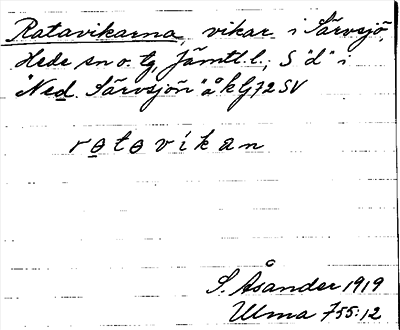 Ratavikarna, vikar i Särvsjö,
Hede sn o. tg, Jämtl. l.; S "d" i
"Ned. Särvsjön" å k G72 SV
rɵtɵvíkan
S. Åsander 1919
Ulma 755:12